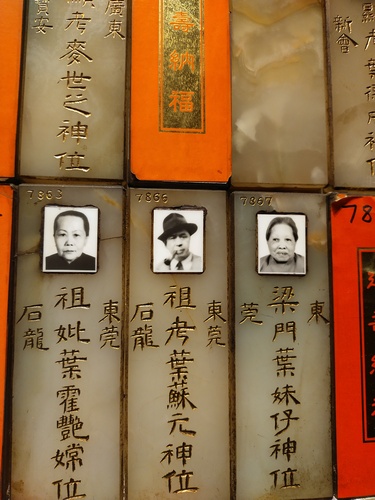 廣東
寶安
顯考麥世之神位
壽納福
新會
7863
東莞
祖妣葉霍艷嫦位
石龍
7866
東莞
祖考葉蘇元神位
石龍
7867
東
梁門葉妹仔神位
莞
78